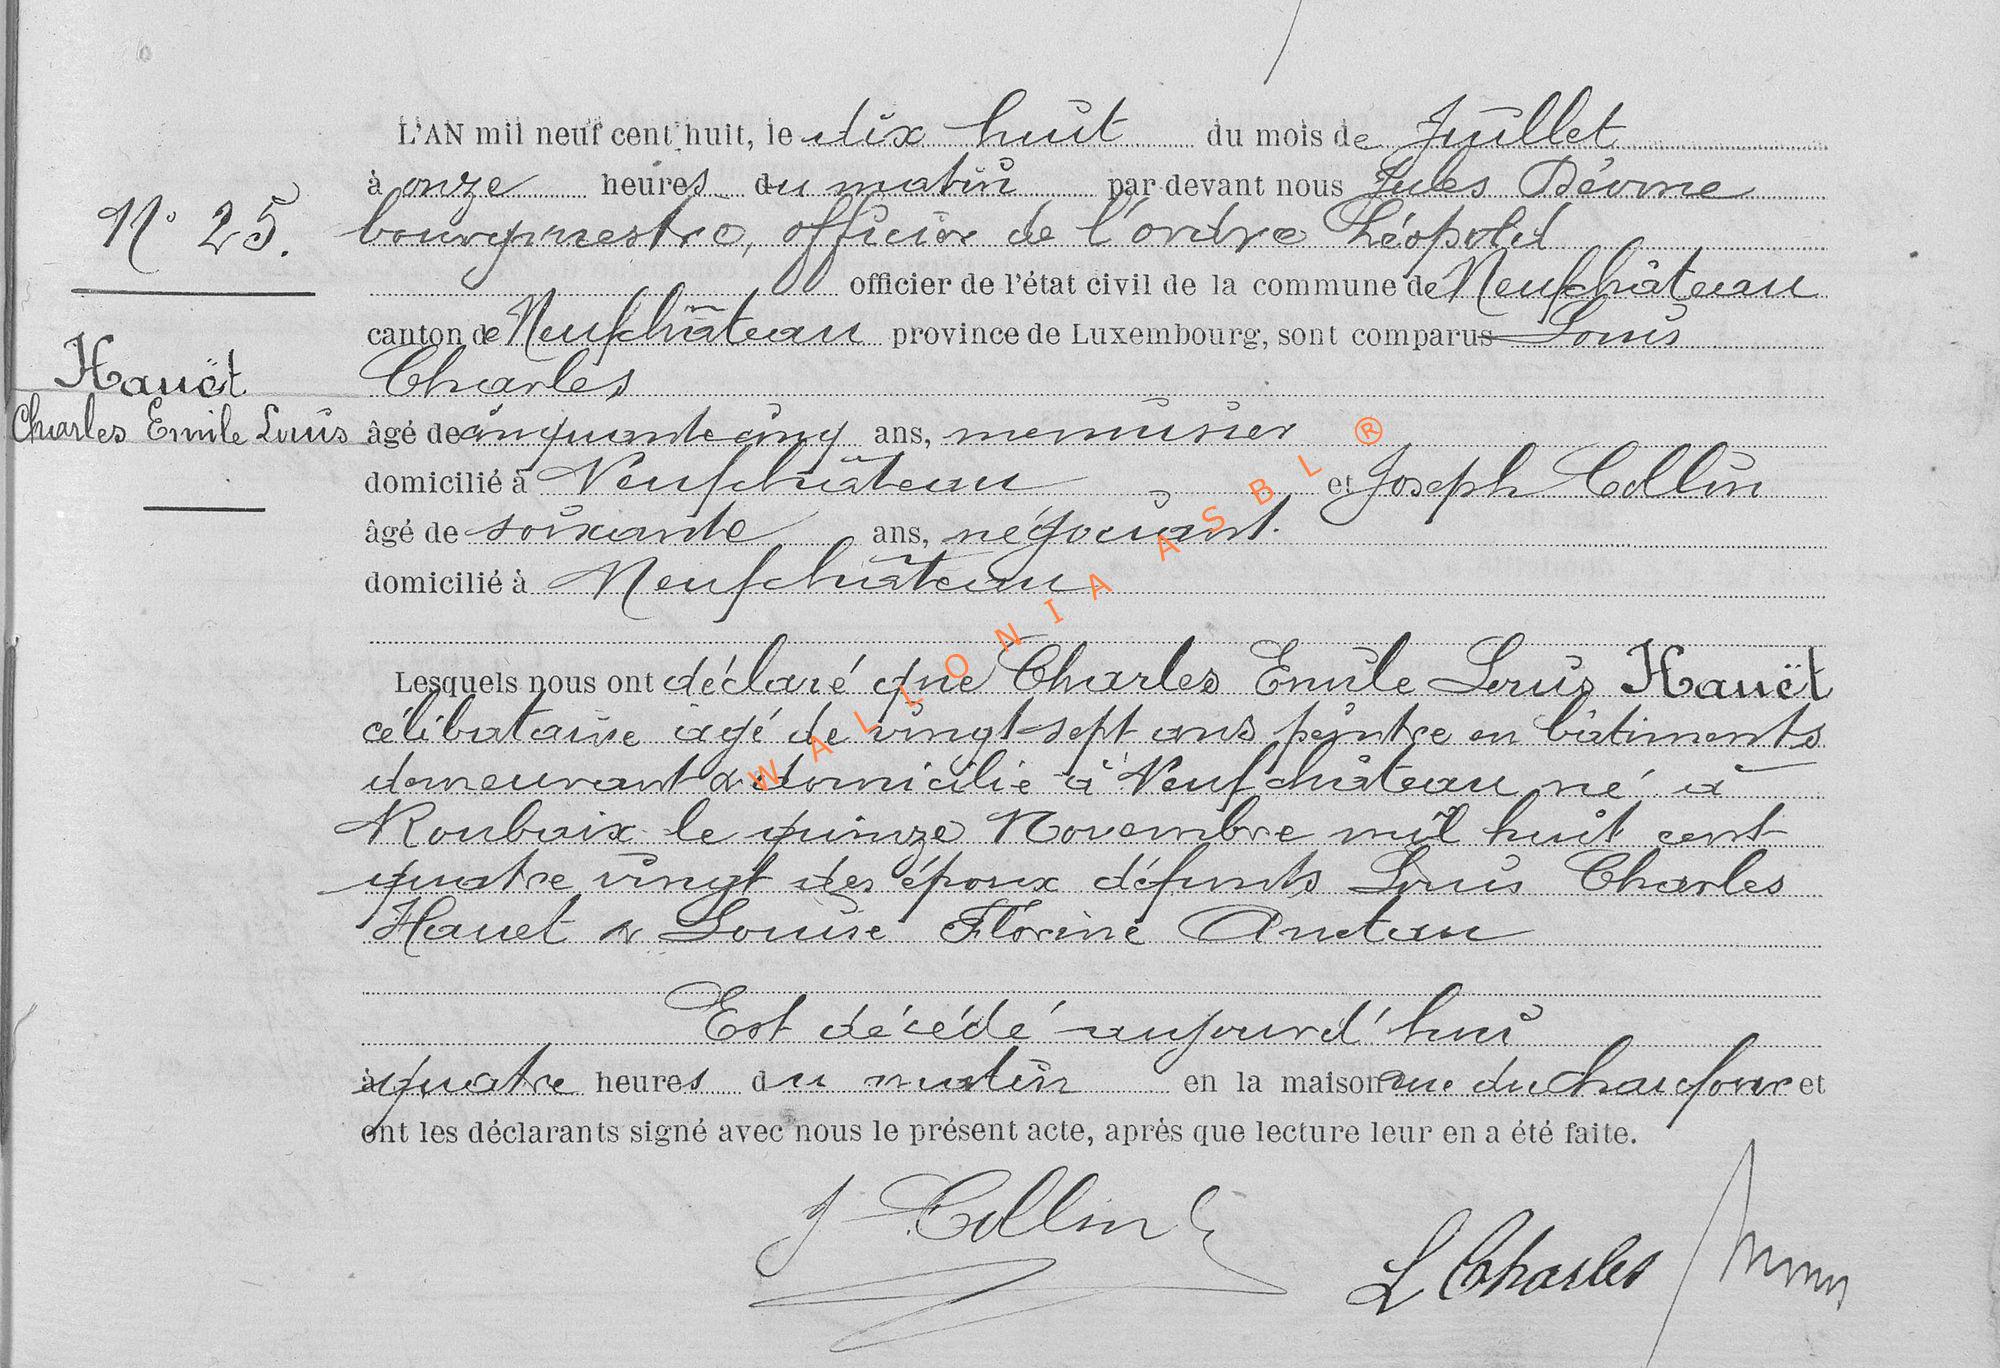 L'AN mil neuf cent huit, le dix huit du mois de Juillet
à onze heures du matin par devant nous Jules
N° 25. bourgmestre, officier de l'ordre Léopold
officier de l'état civil de la commune de Neufchâteau
canton de Neufchâteau province de Luxembourg, sont comparus Louis
Hauët Charles
Charles Emile Louis âgé de cinquante cinq ans, menuisier
domicilié à Neufchâteau et Joseph Collin
âgé de soixante ans, négociant.
domicilié à Neufchâteau
Lesquels nous ont déclaré que Charles Emile Louis Hauët
célibataire agé de vingt-sept ans peintre en bâtiments
demeurant & domicilié à Neufchâteau né à
Roubaix le quinze Novembre mil huit cent
quatre vingt des époux défunts Louis Charles
Hauet & Louise Florine
Est décédé aujourd'hui
à quatre heures du matin en la maison rue du Chaufour et
ont les déclarants signé avec nous le présent acte, après que lecture leur en a été faite.
J Collin
L Charles
WALLONIA ASBL ®